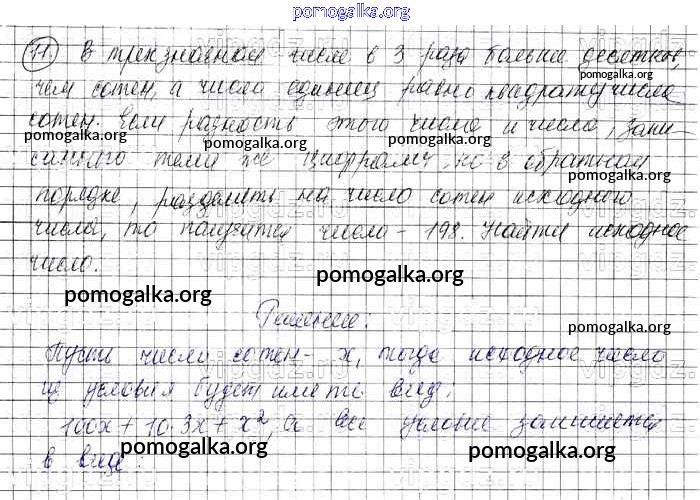 pomogalka.org
11 В трехзначном числе в 3 раза больше десятков,
pomogalka.org
чем сотен, а число единиц равно квадрату числа
pomogalka.org
сотен. Если разность этого числа и числа, запи-
pomogalka.org pomogalka.org
санного теми же цифрами, но в обратном
pomogalka.org
порядке, разделить на число сотен исходного
числа, то получится число - 198. Найти исходное
число.
pomogalka.org pomogalka.org
Решение:
pomogalka.org
Пусть число сотен - x, тогда исходное число
из условия будет иметь вид:
100x + 10·3x + x², а все условие запишется
в виде:
pomogalka.org pomogalka.org